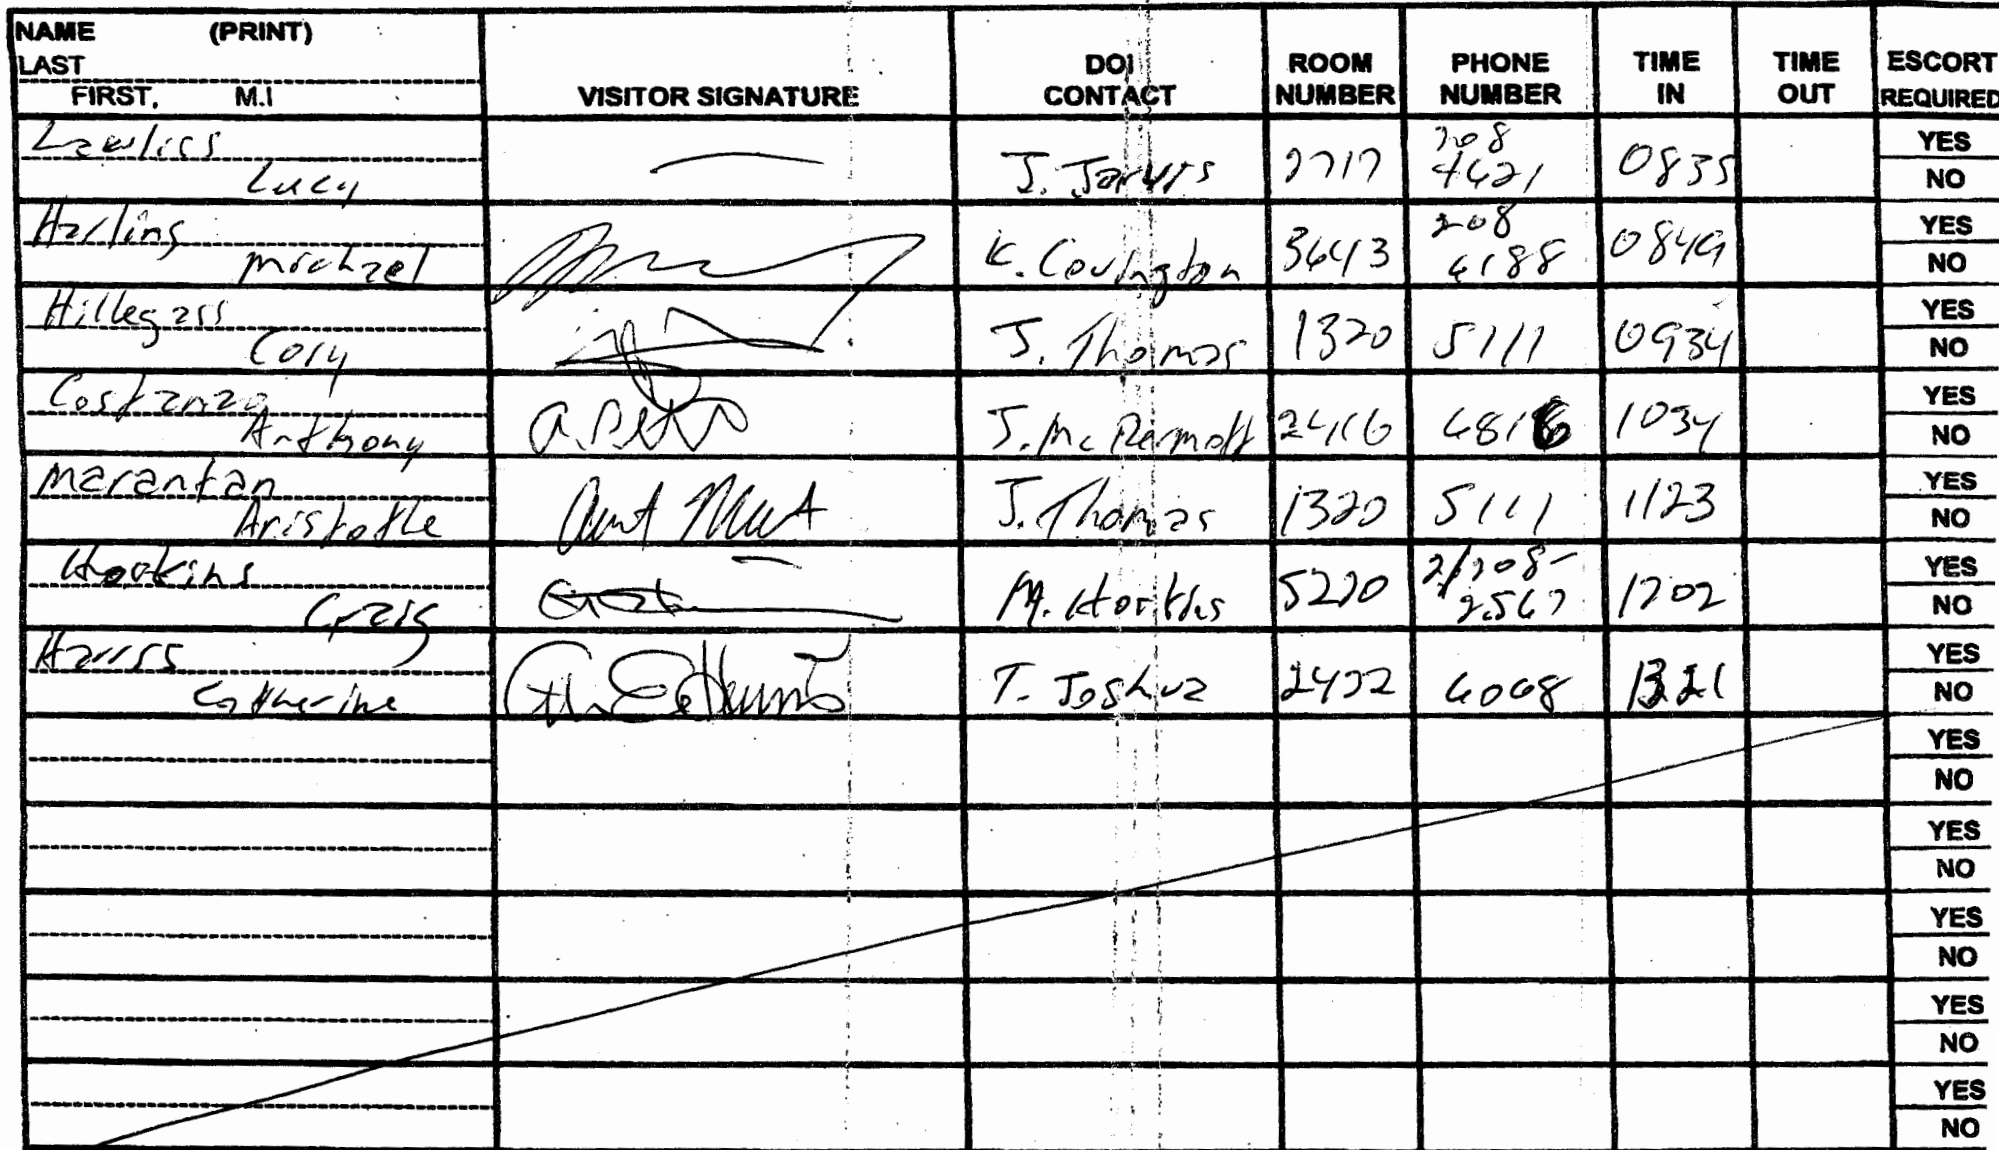 NAME (PRINT)
LAST
FIRST, M.I
VISITOR SIGNATURE
DOI
CONTACT
ROOM
NUMBER
PHONE
NUMBER
TIME
IN
TIME
OUT
ESCORT
REQUIRED
Lawliss
Lucy
J. Jarvis
2717
208
4621
0835
YES
NO
Harling
Michael
K. Covington
3643
208
4188
0849
YES
NO
Hillegass
Cory
J. Thomas
1320
5111
0934
YES
NO
Costanzo
Anthony
J. McDermott
2416
1034
YES
NO
Marantan
Aristotle
J. Thomas
1320
5111
1123
YES
NO
Craig
5220
2/208-
2567
1202
YES
NO
Harris
Catherine
T. Joshua
2422
4068
1321
YES
NO
YES
NO
YES
NO
YES
NO
YES
NO
YES
NO